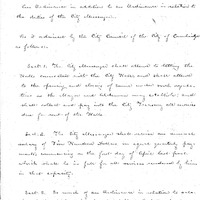 An Ordinance in addition to an Ordinance in relation to
the duties of the City Messenger.
Be it ordained by the City Council of the City of Cambridge
as follows:
Sect. 1. The City Messenger shall attend to letting the
Halls connected with the City
to the opening and closing of same under such regula-
tions as the Mayor and Aldermen may establish; and
shall collect and pay into the City Treasury all monies
due for rent of the Halls.
Sect. 2. The City Messenger shall receive an annual
salary of Five Hundred Dollars in equal quarterly pay-
ments commencing on the first day of April last past
which shall be in full for all services rendered by him
in that capacity.
Sect. 3. So much of an Ordinance in relation to